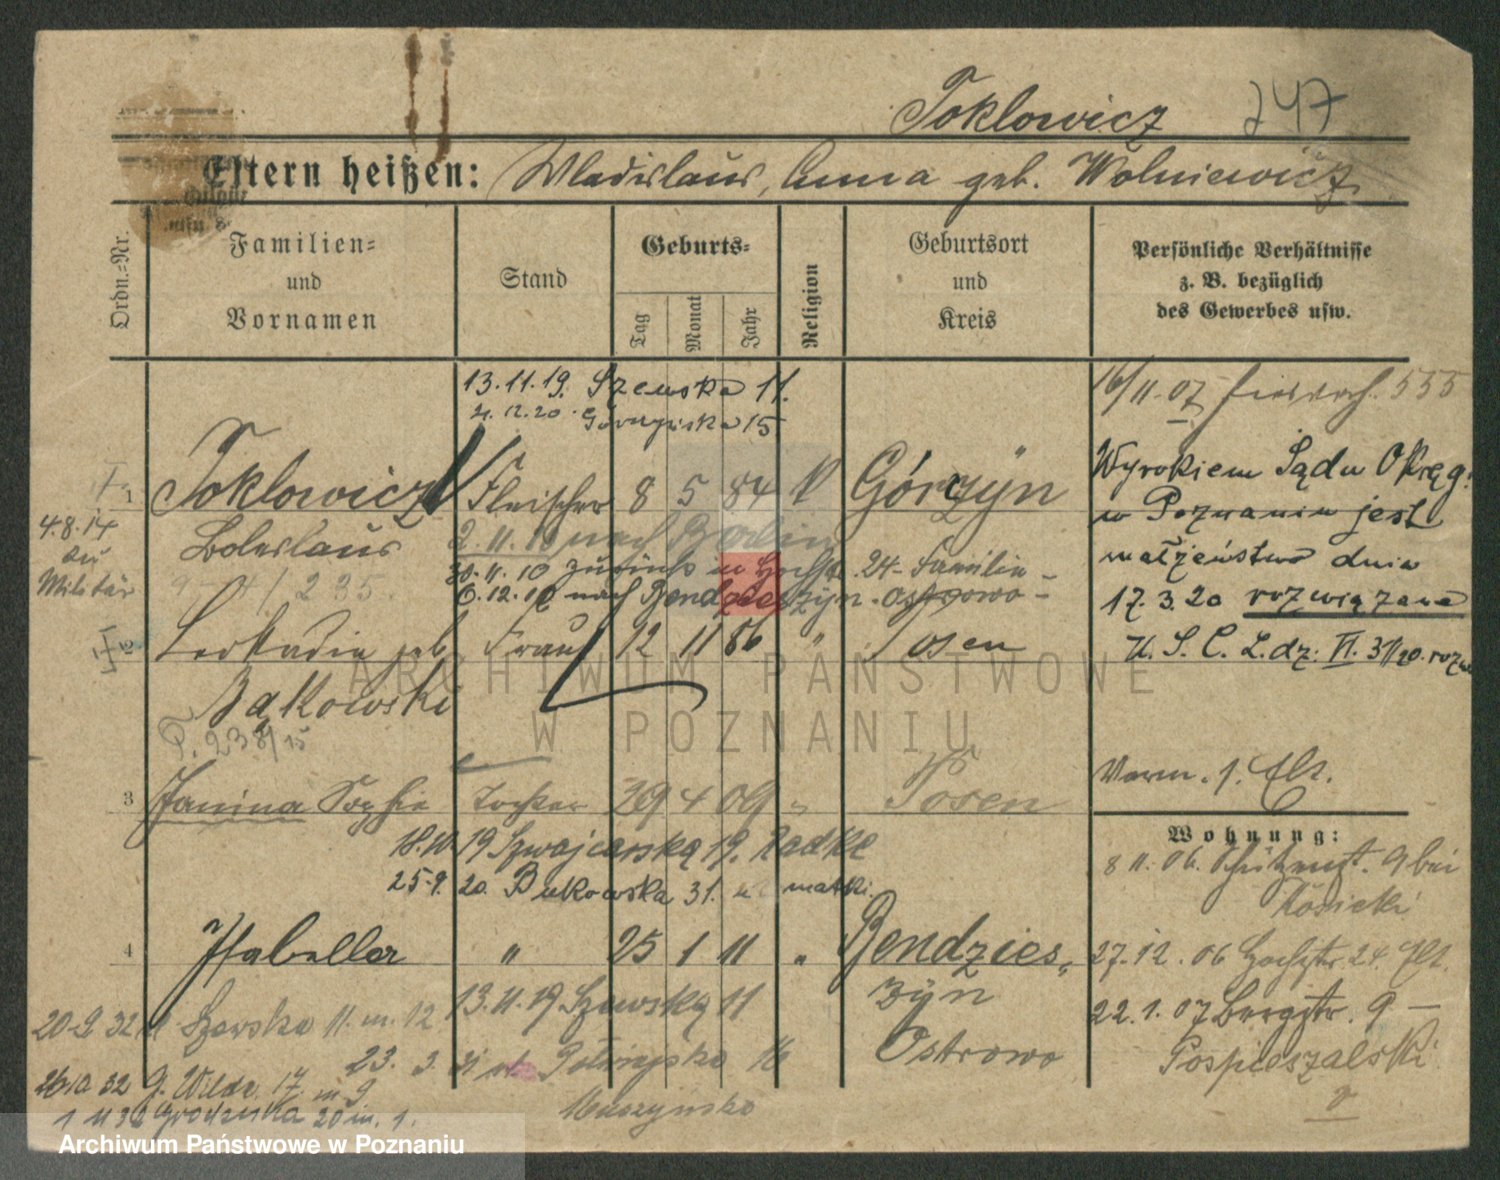 Toklowicz 247
Eltern heißen: Wladislaus, Anna geb. Wolniewicz
Ordn.=Nr.
Familien=
und
Vornamen
Stand
Geburts=
Tag
Monat
Jahr
Religion
Geburtsort
und
Kreis
Persönliche Verhältnisse
z. B. bezüglich
des Gewerbes usw.
13.11.19. Szewska 11.
21.12.20. Górczyńska 15
16/11.07 555
1 Toklowicz Fleischer 8 5 84 k Górczyn
Boleslaus
4.8.14
zu
Militär
2.11.10 nach Berlin
30.11.10 zurück in Hochstr. 24 - Familie -
6.12.10 nach Bendzieszyn - Ostrowo -
9 4/235.
Wyrokiem Sądu Okręg.
w Poznaniu jest
małżeństwo dnia
17.3.20 rozwiązane
U. S. C. L.dz: VI. 31/20.
2 Leokadia geb. Frau 12 11 86 " Posen
Bąkowski
P. 238/15
Verm. s. Elt.
3 Janina Sophie Tochter 29 4 09 " Posen
18.10.19 Szwajcarska 19. Radke
25.9.20. Bukowska 31. u matki.
Wohnung:
8 11. 06. Schützenstr. 9 bei
Kosicki
4 Isabella " 25 1 11 " Bendzies,
zyn
Ostrowo
27.12.06 Hochstr. 24. Elt.
13.11.19 Szewska 11
22.1.07 Bergstr. 9 —
Pospieszalski
20-9 32 Szewska 11. m. 12
23. 3. 16
G. Wilda. 17 m 9
Muszyńska
1 11 32 Grodziska 20 m. 1.
ARCHIWUM PAŃSTWOWE
W POZNANIU
Archiwum Państwowe w Poznaniu